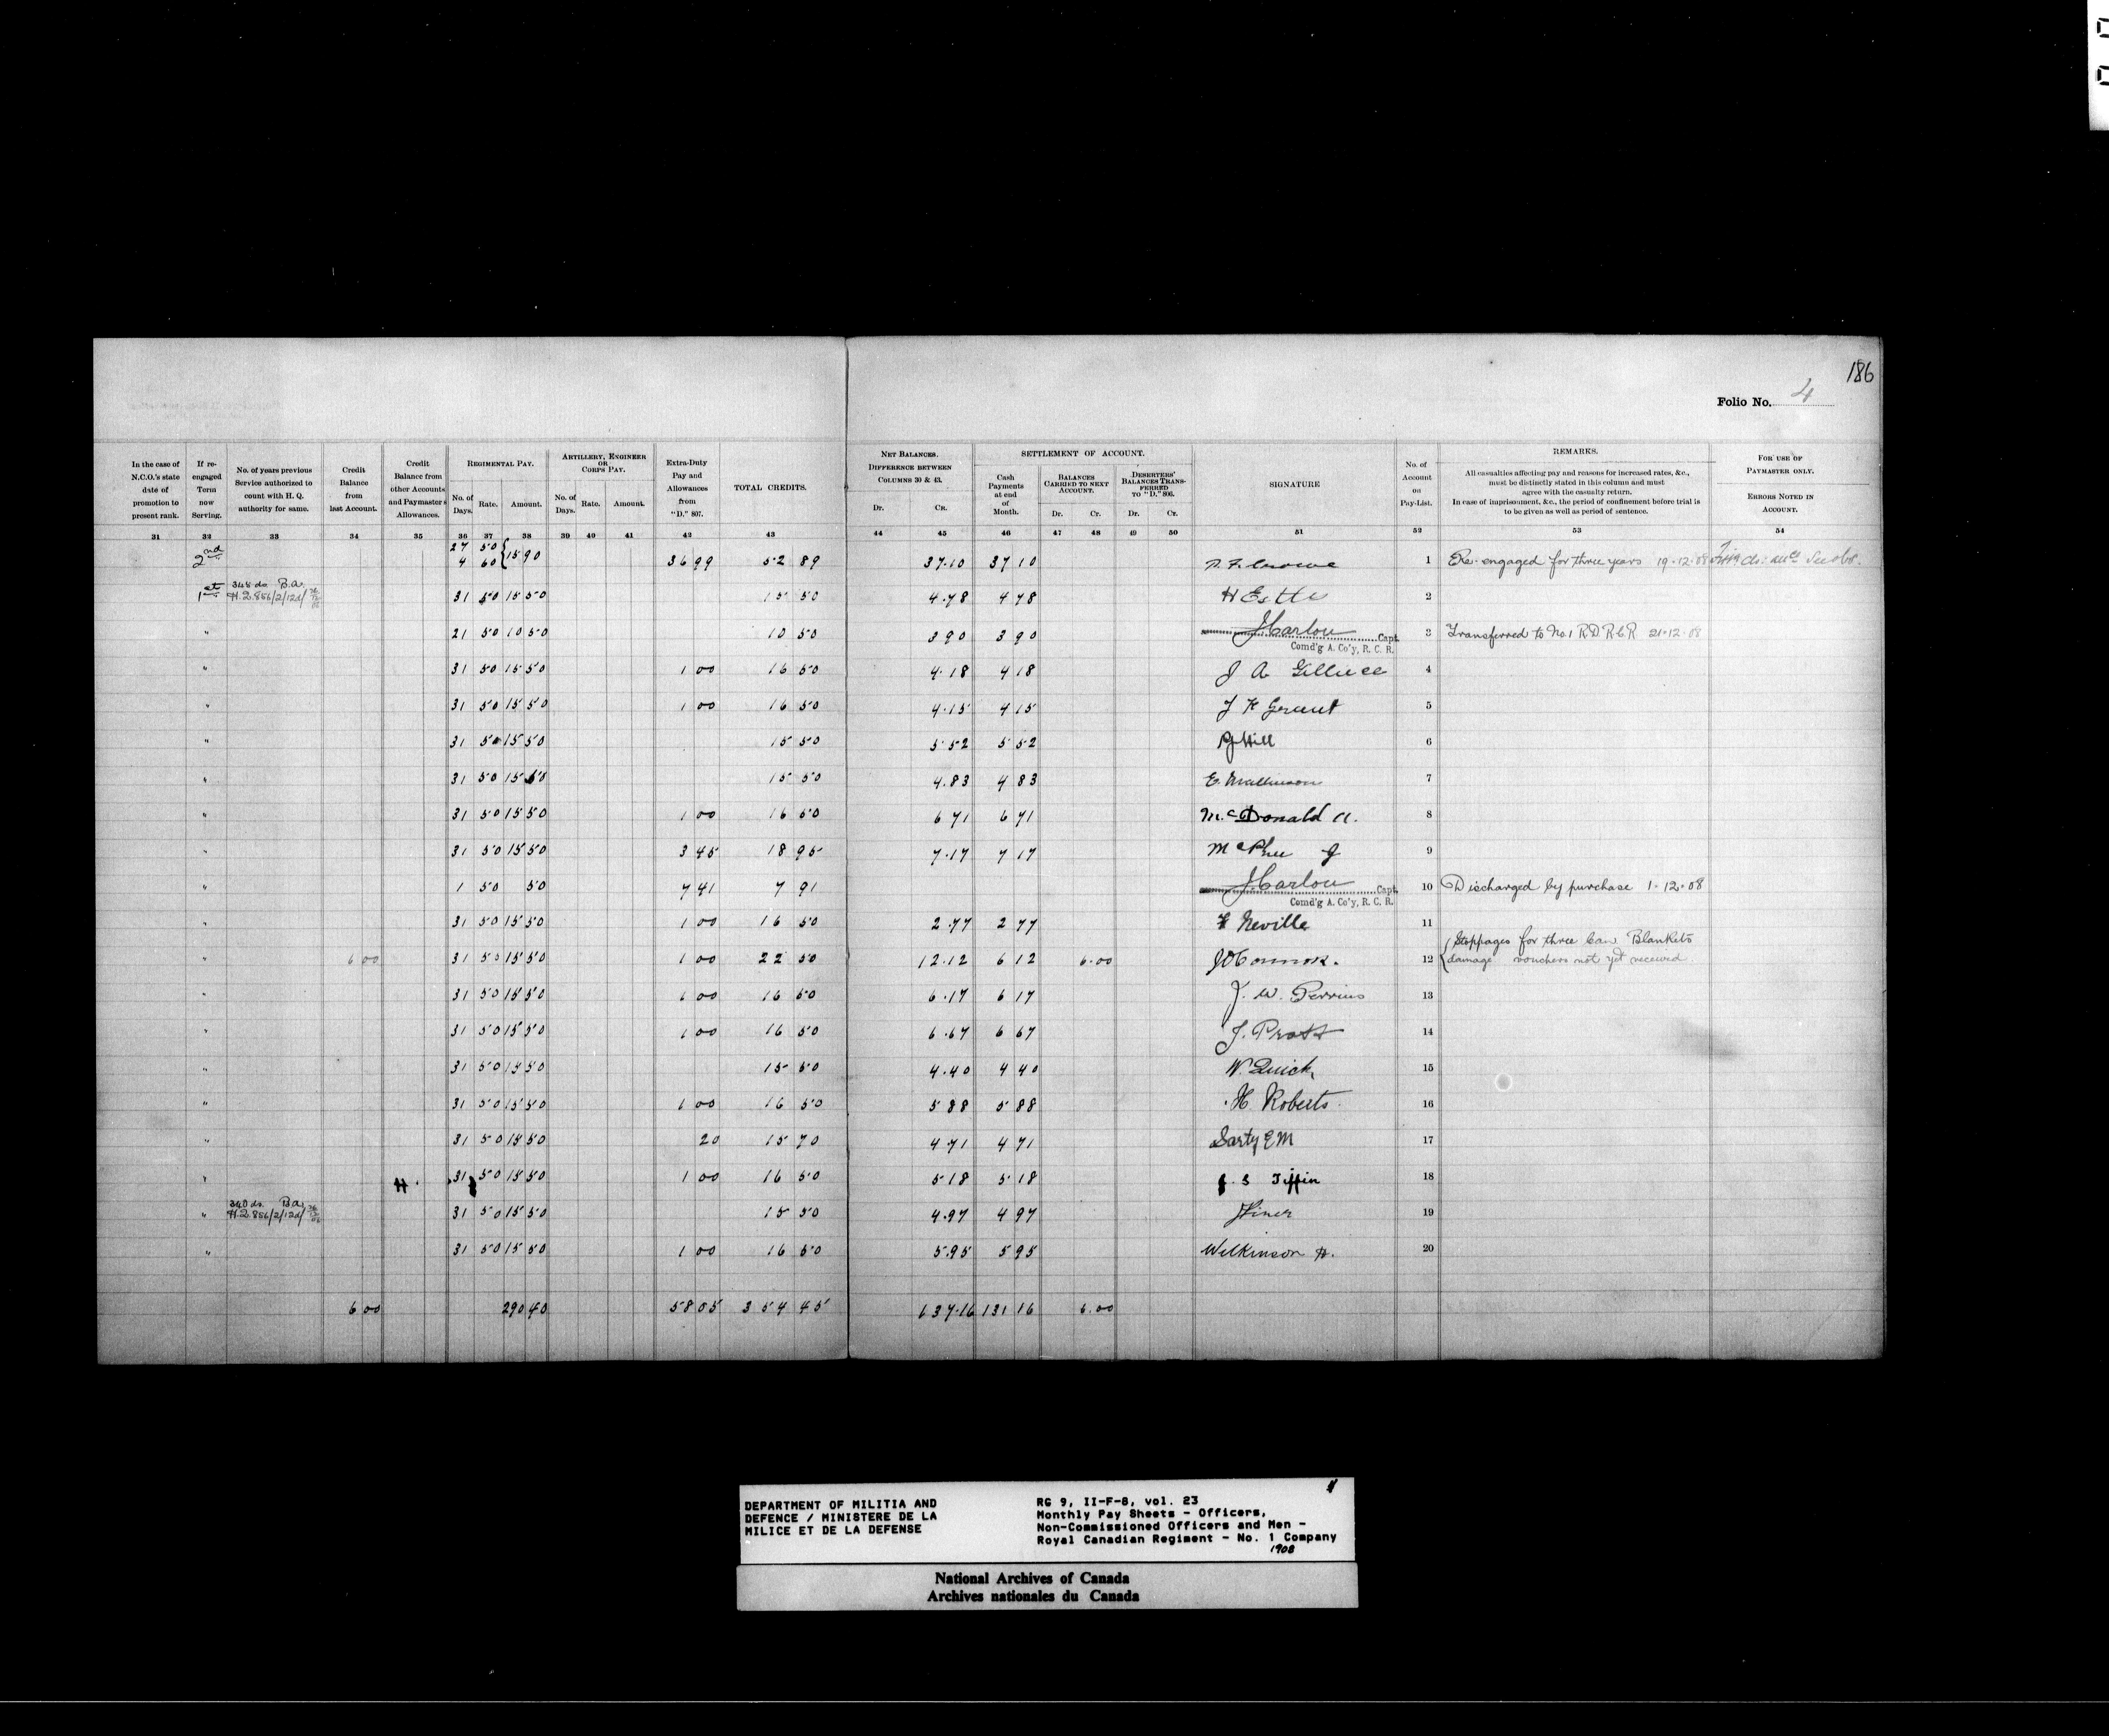 186
Folio No. 4
In the case of N.C.O.'s state date of promotion to present rank.
If re-engaged Term now Serving.
No. of years previous Service authorized to count with H. Q. authority for same.
Credit Balance from last Account.
Credit Balance from other Accounts and Paymaster's Allowances.
REGIMENTAL PAY.
No. of Days. Rate. Amount.
ARTILLERY, ENGINEER OR CORPS PAY.
No. of Days. Rate. Amount.
Extra-Duty Pay and Allowances from "D." 807.
TOTAL CREDITS.
NET BALANCES. DIFFERENCE BETWEEN COLUMNS 30 & 43.
Dr. Cr.
SETTLEMENT OF ACCOUNT.
Cash Payments at end of Month.
BALANCES CARRIED TO NEXT ACCOUNT.
Dr. Cr.
DESERTERS' BALANCES TRANSFERRED TO "D." 806.
Dr. Cr.
SIGNATURE
No. of Account on Pay-List.
REMARKS.
All casualties affecting pay and reasons for increased rates, &c., must be distinctly stated in this column and must agree with the casualty return.
In case of imprisonment, &c., the period of confinement before trial is to be given as well as period of sentence.
FOR USE OF PAYMASTER ONLY.
ERRORS NOTED IN ACCOUNT.
31 32 33 34 35 36 37 38 39 40 41 42 43 44 45 46 47 48 49 50 51 52 53 54
2nd 27 50 4 60 15 90 36 99 52 89 37.10 37 10 Crowe 1 Re-engaged for three years 19.12.08
1st 348 ds. B.a. H.Q. 856/2/12d/ 31 50 15 50 15 50 4.78 4 78 H Estle 2
" 21 50 10 50 10 50 3 90 3 90 J Carlou Capt. 3 Transferred to No. 1 R D R C R 21-12-08
Comd'g A. Co'y, R. C. R.
" 31 50 15 50 1 00 16 50 4.18 4 18 J A 4
" 31 50 15 50 1 00 16 50 4.15 4 15 Grant 5
" 31 50 15 50 15 50 5 52 5 52 Hill 6
" 31 50 15 50 15 50 4.83 4 83 E. Mallinson 7
" 31 50 15 50 1 00 16 50 6 71 6 71 McDonald A. 8
" 31 50 15 50 3 45 18 95 7.17 7 17 McPhee J 9
" 1 50 50 7 41 7 91 J Carlou Capt. 10 Discharged by purchase 1.12.08
Comd'g A. Co'y, R. C. R.
" 31 50 15 50 1 00 16 50 2.77 2 77 Neville 11
" 6 00 31 50 15 50 1 00 22 50 12.12 6 12 6.00 J O'Connor. 12 Stoppages for three Blankets
damage vouchers not yet received.
" 31 50 15 50 1 00 16 50 6.17 6 17 J. W. Perrins 13
" 31 50 15 50 1 00 16 50 6.67 6 67 J. Pratt 14
" 31 50 15 50 15 50 4.40 4 40 W. Quick 15
" 31 50 15 50 1 00 16 50 5 88 5 88 H Roberts 16
" 31 50 15 50 20 15 70 4 71 4 71 Sarty E M 17
" 31 50 15 50 1 00 16 50 5 18 5 18 S Tiffin 18
" 340 ds. B.a. H.Q. 856/2/12d/ 31 50 15 50 15 50 4.97 4 97 19
" 31 50 15 50 1 00 16 50 5.95 5 95 Wilkinson H. 20
6 00 290 40 58 05 354 45 137.16 131 16 6.00
DEPARTMENT OF MILITIA AND
DEFENCE / MINISTERE DE LA
MILICE ET DE LA DEFENSE
RG 9, II-F-8, vol. 23
Monthly Pay Sheets - Officers,
Non-Commissioned Officers and Men -
Royal Canadian Regiment - No. 1 Company
1908
National Archives of Canada
Archives nationales du Canada